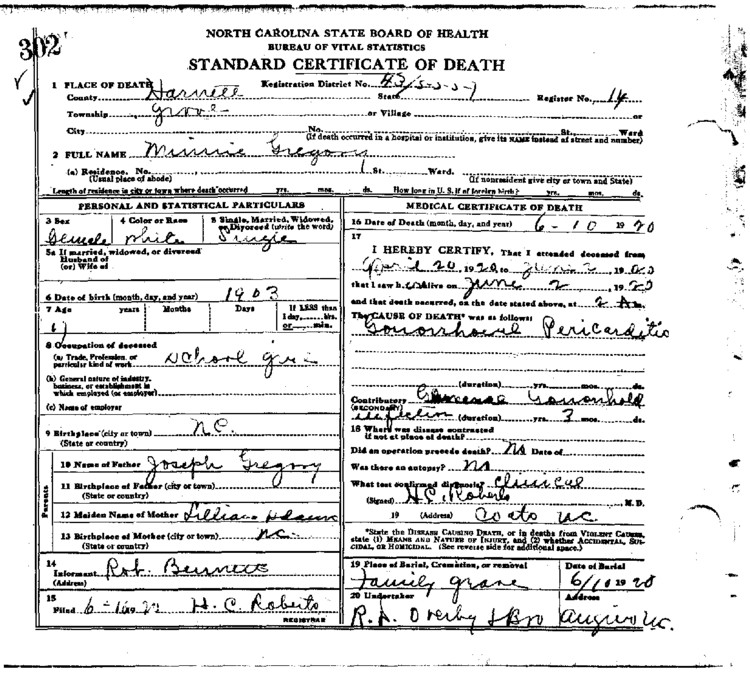 302
NORTH CAROLINA STATE BOARD OF HEALTH
BUREAU OF VITAL STATISTICS
STANDARD CERTIFICATE OF DEATH
1 PLACE OF DEATH Registration District No. 43/5-5-5-7
County Harnett State Register No. 14
Township Grove or Village or
City No. St., Ward
(If death occurred in a hospital or institution, give its NAME instead of street and number)
2 FULL NAME Minnie Gregory
(a) Residence. No. St. Ward.
(Usual place of abode) (If nonresident give city or town and State)
Length of residence in city or town where death occurred yrs. mos. ds. How long in U. S. if of foreign birth? yrs. mos. ds.
PERSONAL AND STATISTICAL PARTICULARS
3 Sex 4 Color or Race 5 Single, Married, Widowed, or Divorced (write the word)
Female White Single
5a If married, widowed, or divorced
Husband of
(or) Wife of
6 Date of birth (month, day, and year) 1903
7 Age years Months Days If LESS than
1 day, hrs.
or min.
8 Occupation of deceased
(a) Trade, Profession, or
particular kind of work School girl
(b) General nature of industry,
business, or establishment in
which employed (or employer)
(c) Name of employer
9 Birthplace (city or town) N.C.
(State or country)
Parents
10 Name of Father Joseph Gregory
11 Birthplace of Father (city or town)
(State or country)
12 Maiden Name of Mother Lillian
13 Birthplace of Mother (city or town) N.C.
(State or country)
14
Informant Rob. Bennett
(Address)
15
Filed 6- H. C. Roberts
REGISTRAR
MEDICAL CERTIFICATE OF DEATH
16 Date of Death (month, day, and year) 6-10 1920
17
I HEREBY CERTIFY, That I attended deceased from
April 20, 1920, to June 2, 1920
that I saw h alive on June 2, 1920
and that death occurred, on the date stated above, at 2 A m.
The CAUSE OF DEATH* was as follows:
Gonorrhoeal Pericarditis
(duration) yrs. mos. ds.
Contributory
(SECONDARY)
infection (duration) yrs. 3 mos. ds.
18 Where was disease contracted
if not at place of death?
Did an operation precede death? No Date of
Was there an autopsy? No
What test confirmed diagnosis? Clinical
(Signed) H.C. Roberts M. D.
19 (Address) Coats N.C.
*State the DISEASE CAUSING DEATH, or in deaths from VIOLENT CAUSES,
state (1) MEANS AND NATURE OF INJURY, and (2) whether ACCIDENTAL, SUI-
CIDAL, OR HOMICIDAL. (See reverse side for additional space.)
19 Place of Burial, Cremation, or removal Date of Burial
Family grave 6/10 1920
20 Undertaker Address
R. A. Overby & Bro Angier N.C.